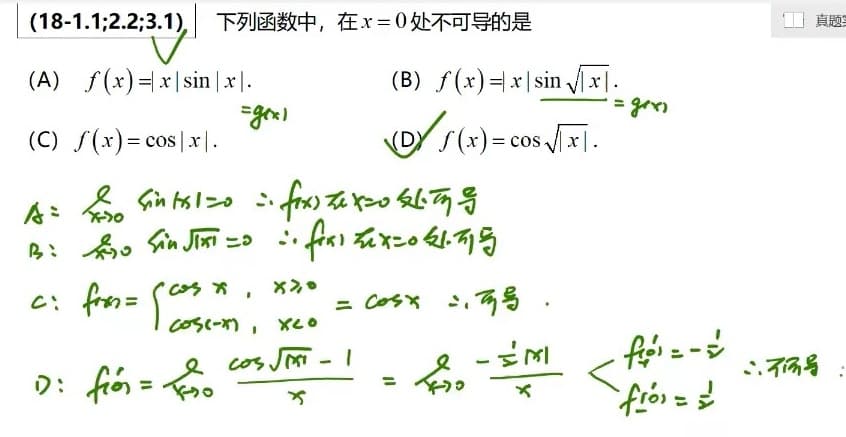 (18-1.1;2.2;3.1) 下列函数中，在 x = 0 处不可导的是
真题
(A) f(x)=|x|sin|x|. (B) f(x)=|x|sin√|x|.
=g(x) =g(x)
(C) f(x)=cos|x|. (D) f(x)=cos√|x|.
A: lim x→0 sin|x|=0 ∴ f(x)在x=0处可导
B: lim x→0 sin√|x|=0 ∴ f(x)在x=0处可导
C: f(x)={cos x, x≥0
cos(-x), x<0 = cosx ∴可导.
D: f'(0)= lim x→0 (cos√|x| - 1)/x = lim x→0 (-1/2|x|)/x < f'₊(0)=-1/2
f'₋(0)=1/2 ∴不可导